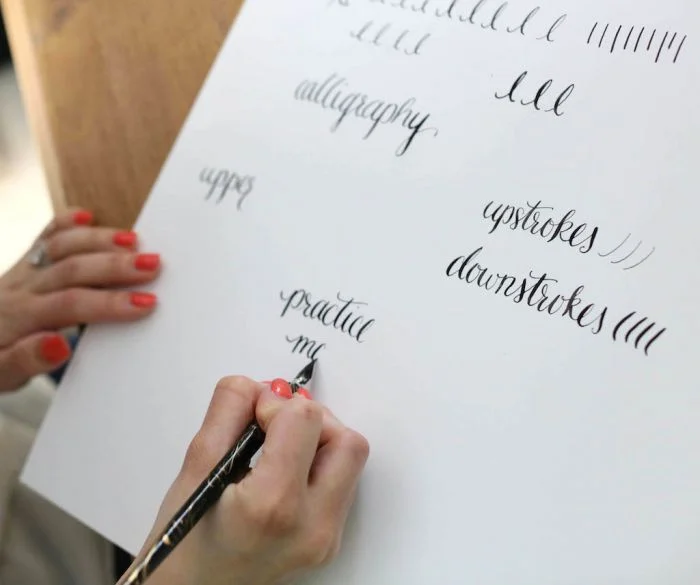 l l l l l l l l
l l l l
l l l
calligraphy
upper
upstrokes
downstrokes
practice